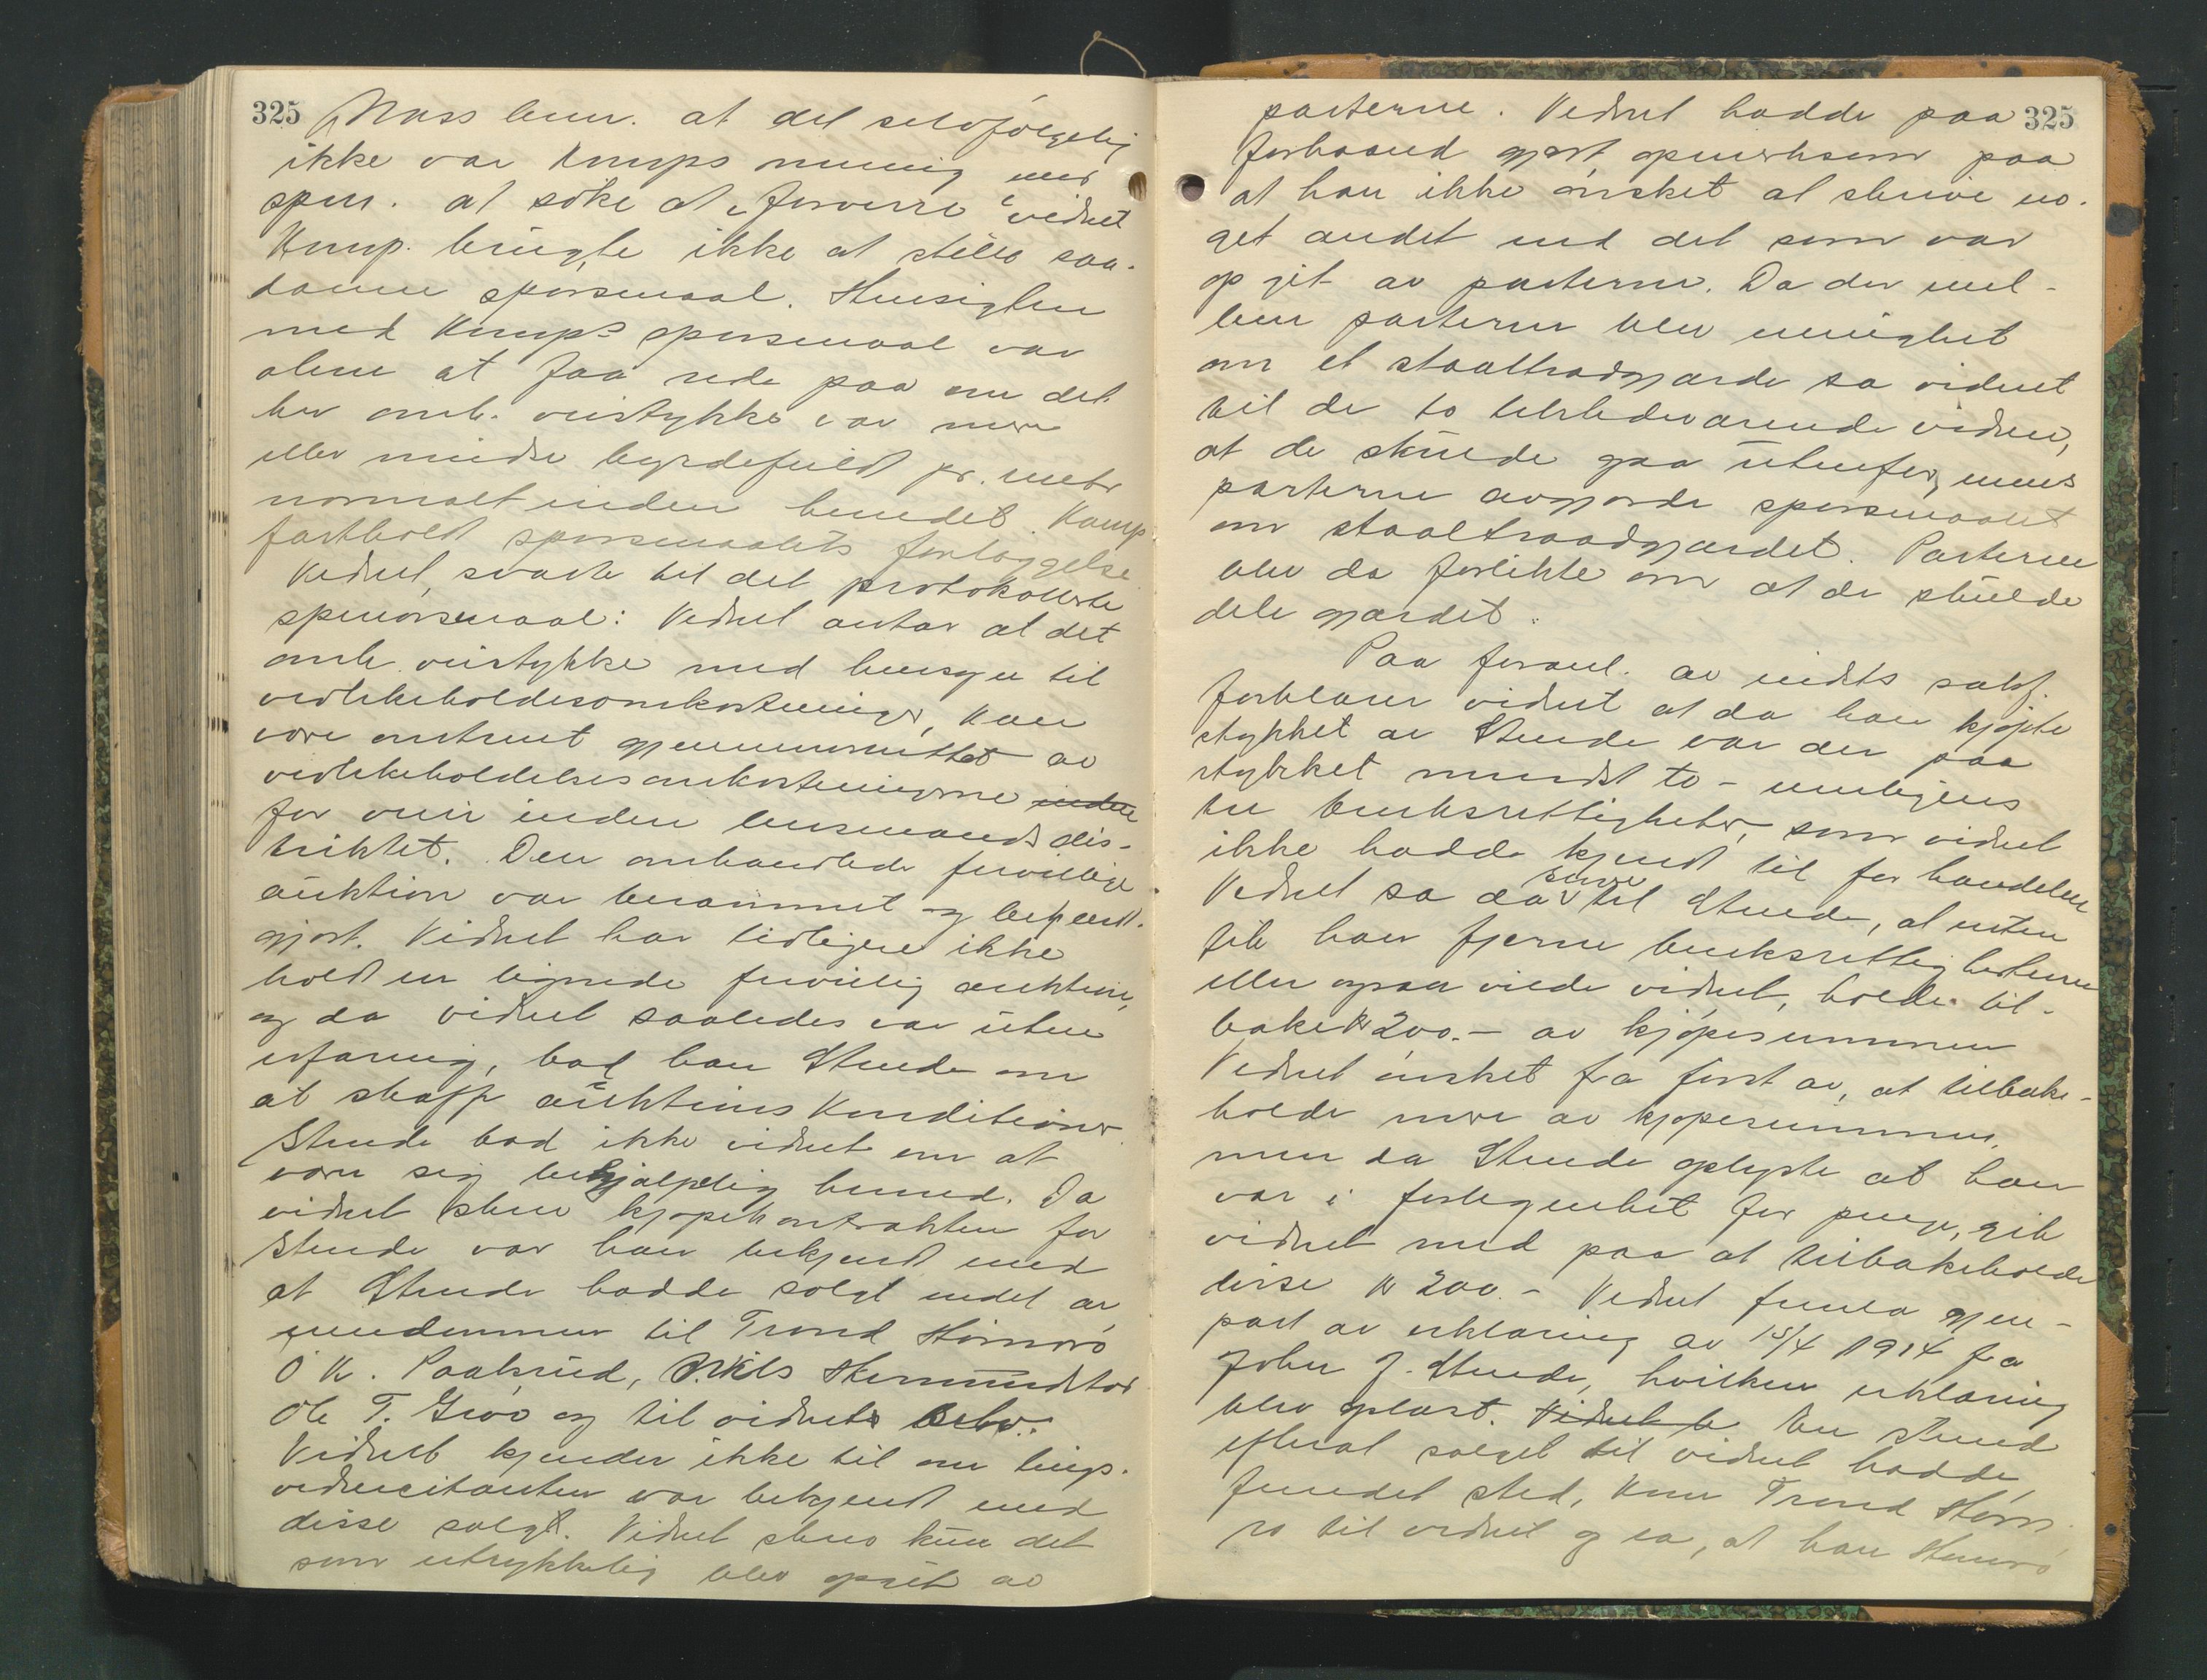 325
Mass bem. at det selvfølgelig
ikke var Kmps mening med
spm. at søke at "forvirre" vidnet
Kmp. brugte ikke at stille saa-
danne spørsmaal. Hensigten
med Kmps spørsmaal var
alene at faa rede paa om det
her omh. veistykke var mere
eller mindre byrdefuldt pr. meter
normalt inden heredet. Kamp
fastholdt spørsmaalets forlæggelse
Vidnet svarte til det protokollerte
spørsmaal: Vidnet antar at det
omh. veistykke med hensyn til
vedlikeholdesomkostninger, kan
være omtrent gjennemsnittet av
vedlikeholdelsesomkostningerne inden
for veier inden lensmandsdis-
triktet. Den omhandlede frivillige
auktion var berammet og bekjendt-
gjort. Vidnet har tidligere ikke
holdt en lignende frivillig auktion,
og da vidnet saaledes var uten
erfaring, bad han Stende om
at skaffe auktionskonditioner.
Stende bad ikke vidnet om at
være sig behjælpelig hermed. Da
vidnet skrev kjøpekontrakten for
Stende var han bekjendt med
at Stende hadde solgt endel av
eiendommen til Trond
O K. Paalsrud, Nils
Ole T. og til vidnets
Vidnet kjender ikke til om tings-
vidnecitanten var bekjendt med
disse salg. Vidnet skrev kun det
som uttrykkelig blev opgit av
325
parterne. Vidnet hadde paa
forhaand gjort opmerksom paa
at han ikke ønsket at skrive no-
get andet end det som var
opgit av parterne. Da der mel-
lem parterne blev uenighet
om et staaltraadgjærde sa vidnet
til de to tilstedeværende vidner,
at de skulde gaa utenfor, mens
parterne avgjorde spørsmaalet
om staaltraadgjærdet. Parterne
blev da forlikte om at de skulde
dele gjærdet.
Paa foranl. av indst. saksf.
forklarer vidnet at da han kjøpte
stykket av Stende var der paa
stykket mindst to - muligens
tre bruksrettigheter, som vidnet
ikke hadde kjendt til før handelen
Vidnet sa da til Stende, at enten
fik han fjerne bruksrettigheterne
eller ogsaa vilde vidnet holde til-
bake kr 200.- av kjøpesummen
Vidnet ønsket fra først av, at tilbake-
holde mere av kjøpesummen,
men da Stende oplyste at han
var i forlegenhet for penge, gik
vidnet med paa at tilbakeholde
disse kr 200.- Vidnet fremla gjen-
part av erklæring av 15/4 1914 fra
John J. Stende, hvilken erklæring
blev oplæst. Vidnet b En stund
efterat salget til vidnet hadde
fundet sted, kom Trond
til vidnet og sa, at han